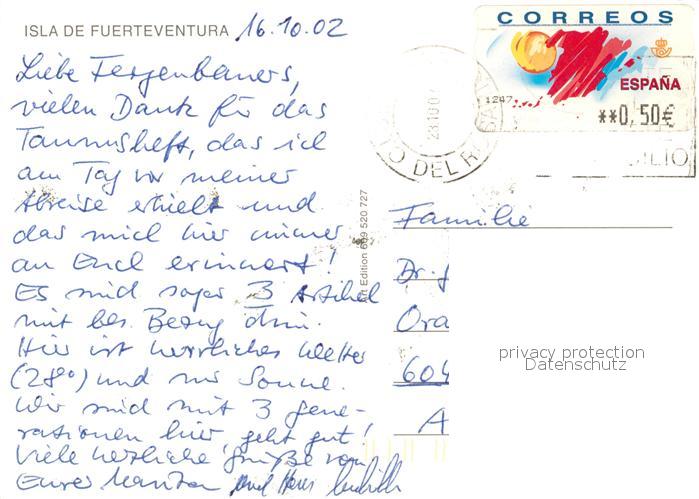 ISLA DE FUERTEVENTURA 16.10.02
Liebe
vielen Dank für das
Taunusheft, das ich
am Tag vor meiner
Abreise erhielt und
das mich hier immer
an Euch erinnert!
Es sind sogar 3 Artikel
mit bes. Bezug drin.
Hier ist herrliches Wetter
(28°) und nur Sonne.
Wir sind mit 3 Gene-
rationen hier, geht gut!
Viele herzliche Grüße von
Eurer und
CORREOS
ESPAÑA
**0,50€
1247
23 10 0
TO DEL ROSA
Edition 609 520 727
Familie
Dr.
Ora
604
A
privacy protection
Datenschutz